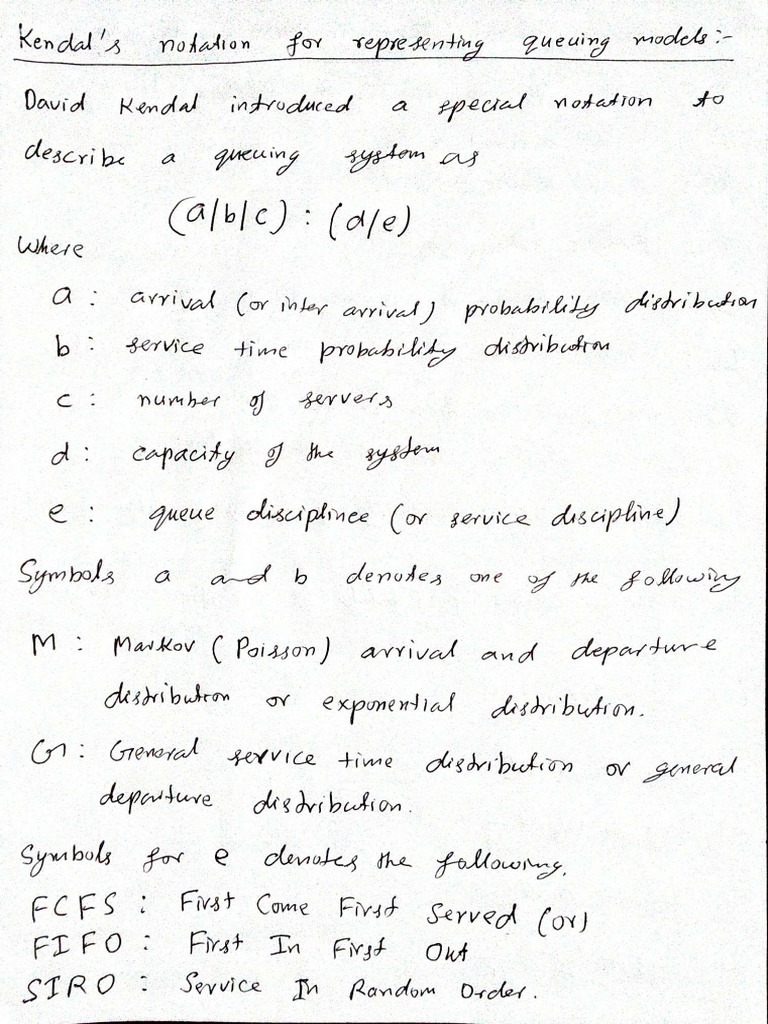 Kendal's notation for representing queuing models:-
David Kendal introduced a special notation to
describe a queuing system as
(a/b/c) : (d/e)
Where
a : arrival (or inter arrival) probability distribution
b : service time probability distribution
c : number of servers
d : capacity of the system
e : queue disciplinee (or service discipline)
Symbols a and b denotes one of the following
M : Markov (Poisson) arrival and departure
distribution or exponential distribution.
G : General service time distribution or general
departure distribution.
Symbols for e denotes the following.
FCFS : First Come First Served (or)
FIFO : First In First Out
SIRO : Service In Random Order.